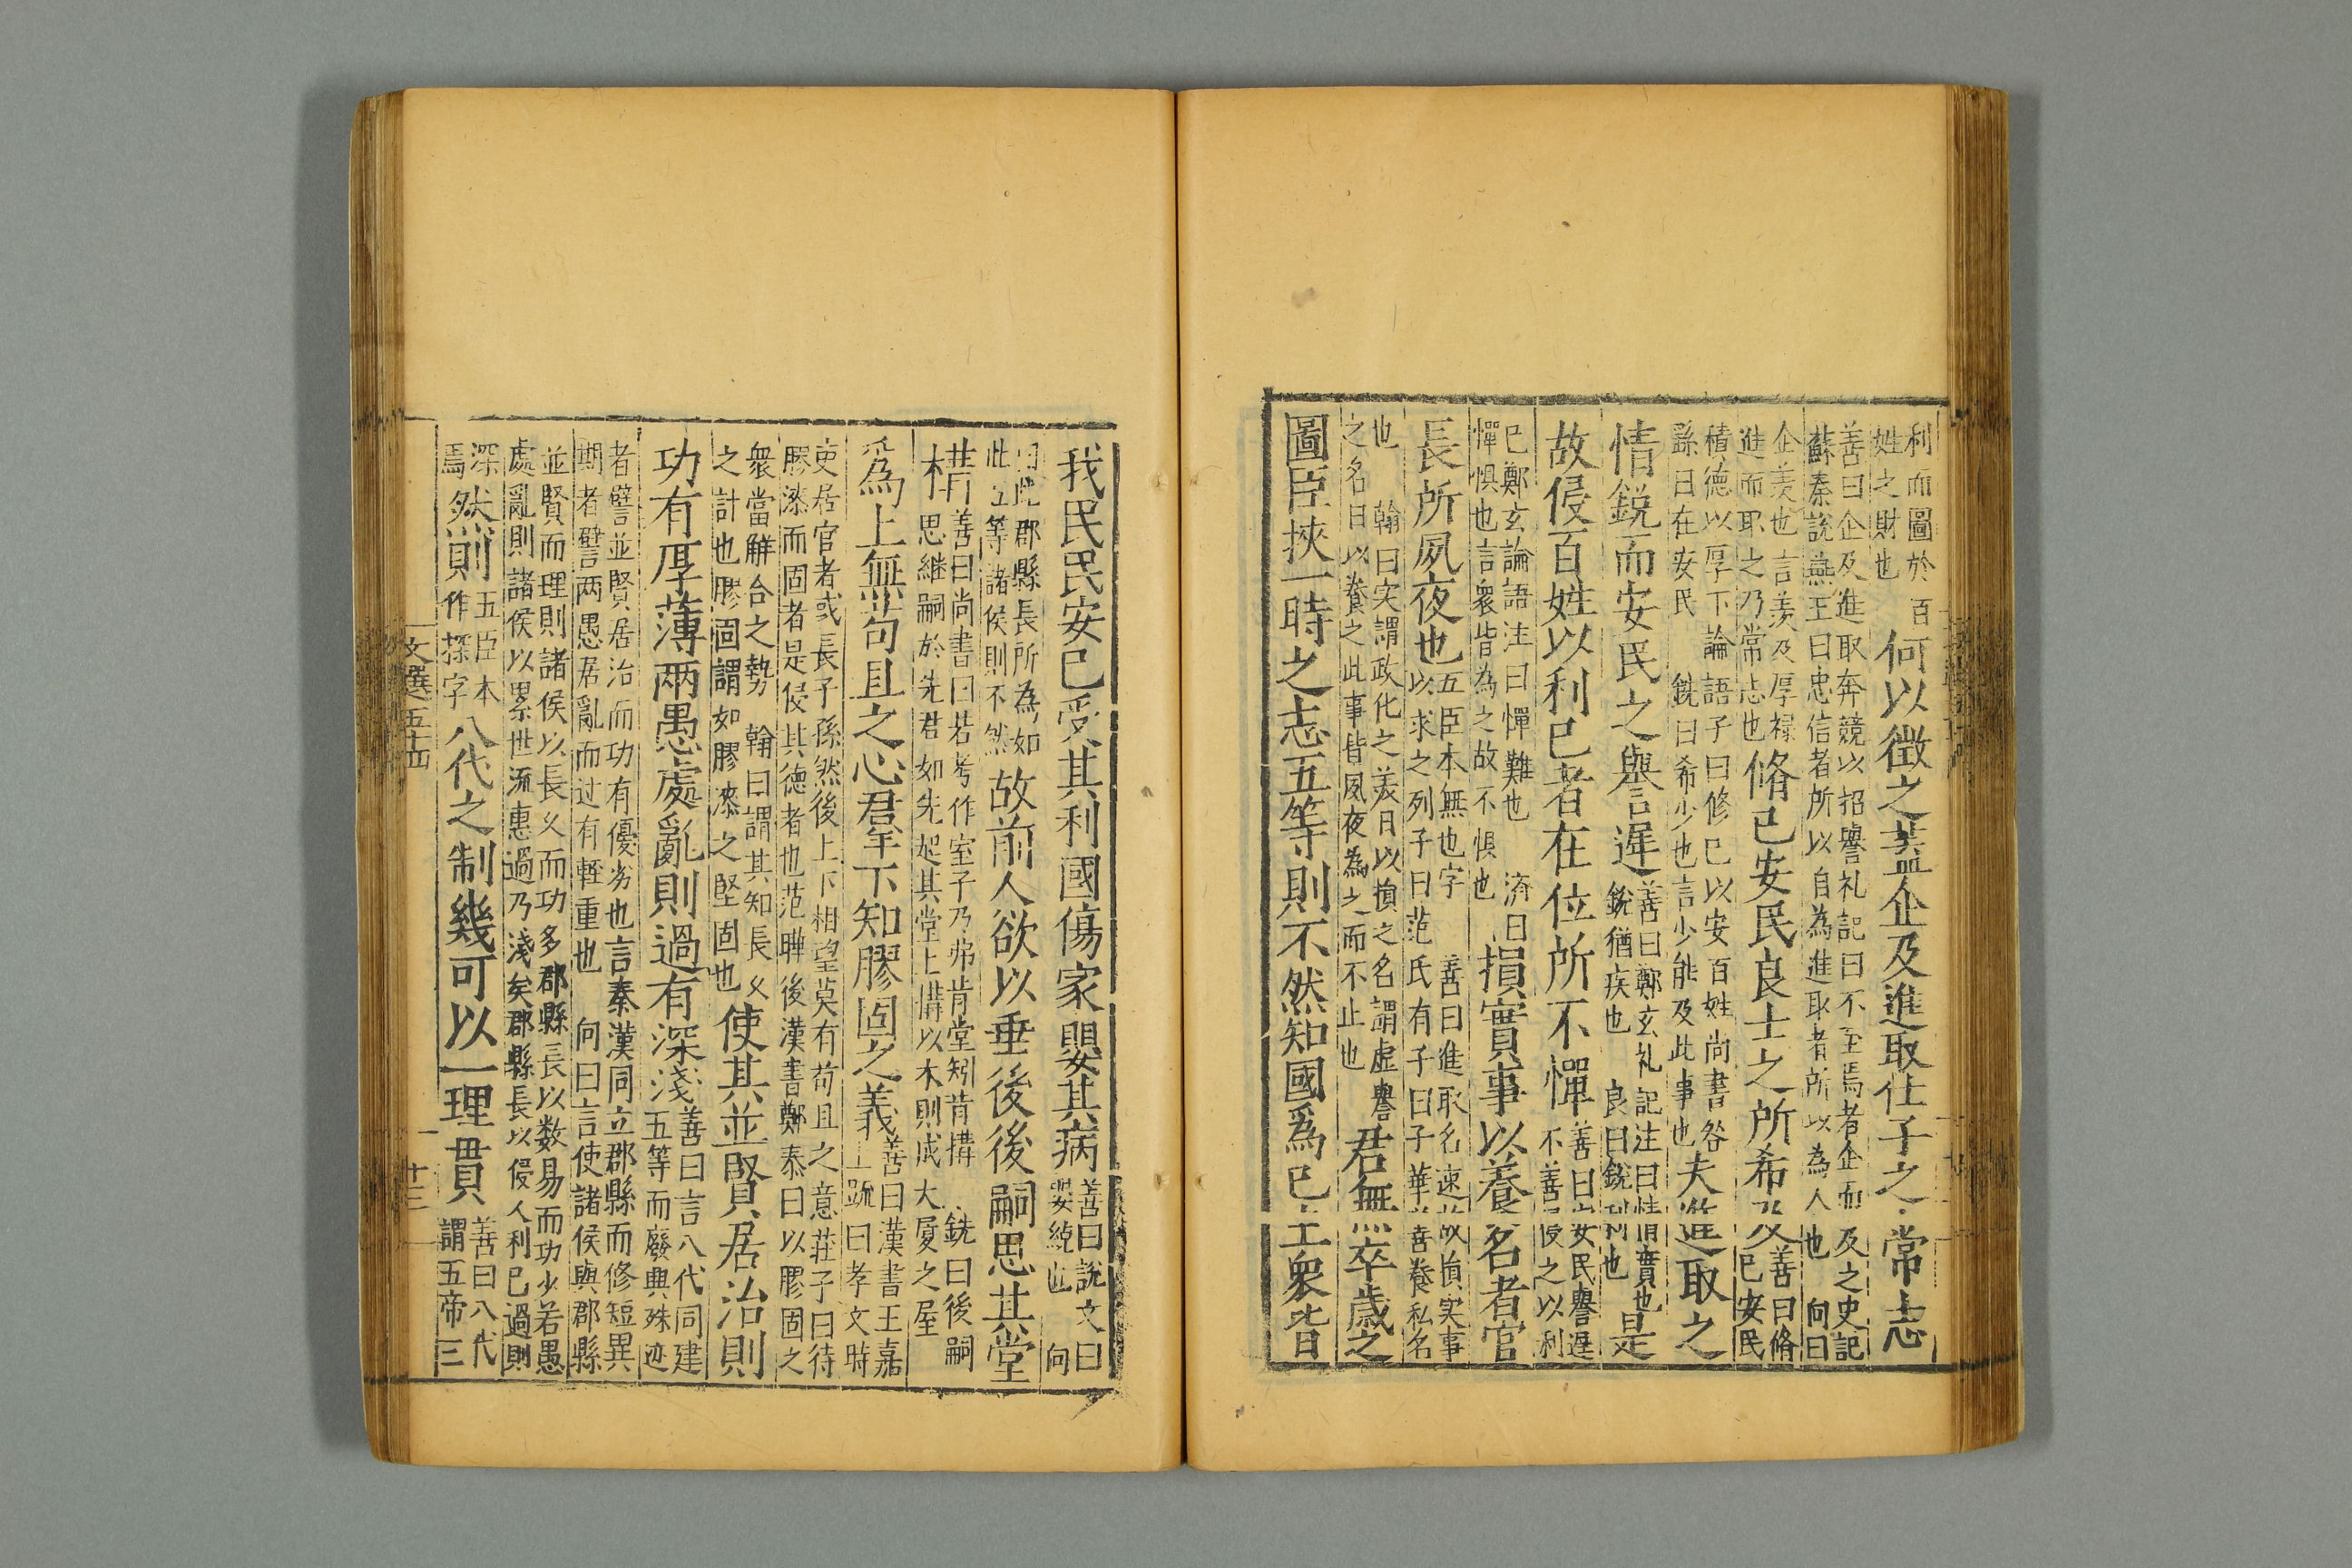 利而圖於百
姓之財也
何以徵之蓋企及進取仕子之常志
善曰企及進取奔競以招譽礼記曰不至焉者企而及之史記
蘇秦說燕王曰忠信者所以自為進取者所以為人也 向曰
企羨也言羨及厚祿
進而取之乃常志也
脩己安民良士之所希及
善曰脩
己安民
積德以厚下論語子曰修己以安百姓尚書咎
繇曰在安民 銑曰希少也言少能及此事也
夫進取之
情銳而安民之譽遲
善曰鄭玄礼記注曰情實也
銳猶疾也 良曰銳利也
是
故侵百姓以利己者在位所不憚
善曰安民譽遲
不善侵之以利
己鄭玄論語注曰憚難也 濟曰
憚懼也言衆皆為之故不懼也
損實事以養名者官
長所夙夜也
五臣本無也字 善曰進取名速故損实事
以求之列子曰范氏有子曰子華善養私名
也 翰曰实謂政化之美日以損之名謂虛譽
之名日以養之此事皆夙夜為之而不止也
君無卒歲之
圖臣挾一時之志五等則不然知國爲己土衆皆
我民民安己受其利國傷家嬰其病
善曰說文曰
嬰繞也 向
曰此郡縣長所為如
此五等諸侯則不然
故前人欲以垂後後嗣思其堂
構
善曰尚書曰若考作室子乃弗肯堂矧肯構 銑曰後嗣
思継嗣於先君如先起其堂上構以木則成大厦之屋
爲上無苟且之心羣下知膠固之義
善曰漢書王嘉
上䟽曰孝文時
吏居官者或長子孫然後上下相望莫有苟且之意莊子曰待
膠漆而固者是侵其德者也范曄後漢書鄭泰曰以膠固之
衆當解合之勢 翰曰謂其知長久
之計也膠固謂如膠漆之堅固也
使其並賢居治則
功有厚薄兩愚處亂則過有深淺
善曰言八代同建
五等而廢興殊迹
者譬並賢居治而功有優劣也言秦漢同立郡縣而修短異
期者譬两愚居亂而过有輕重也 向曰言使諸侯與郡縣
並賢而理則諸侯以長久而功多郡縣長以数易而功少若愚
處亂則諸侯以累世流惠過乃淺矣郡縣長以侵人利己過則
深
焉
然則
五臣本
作探字
八代之制幾可以一理貫
善曰八代
謂五帝三
文選五十四
十三